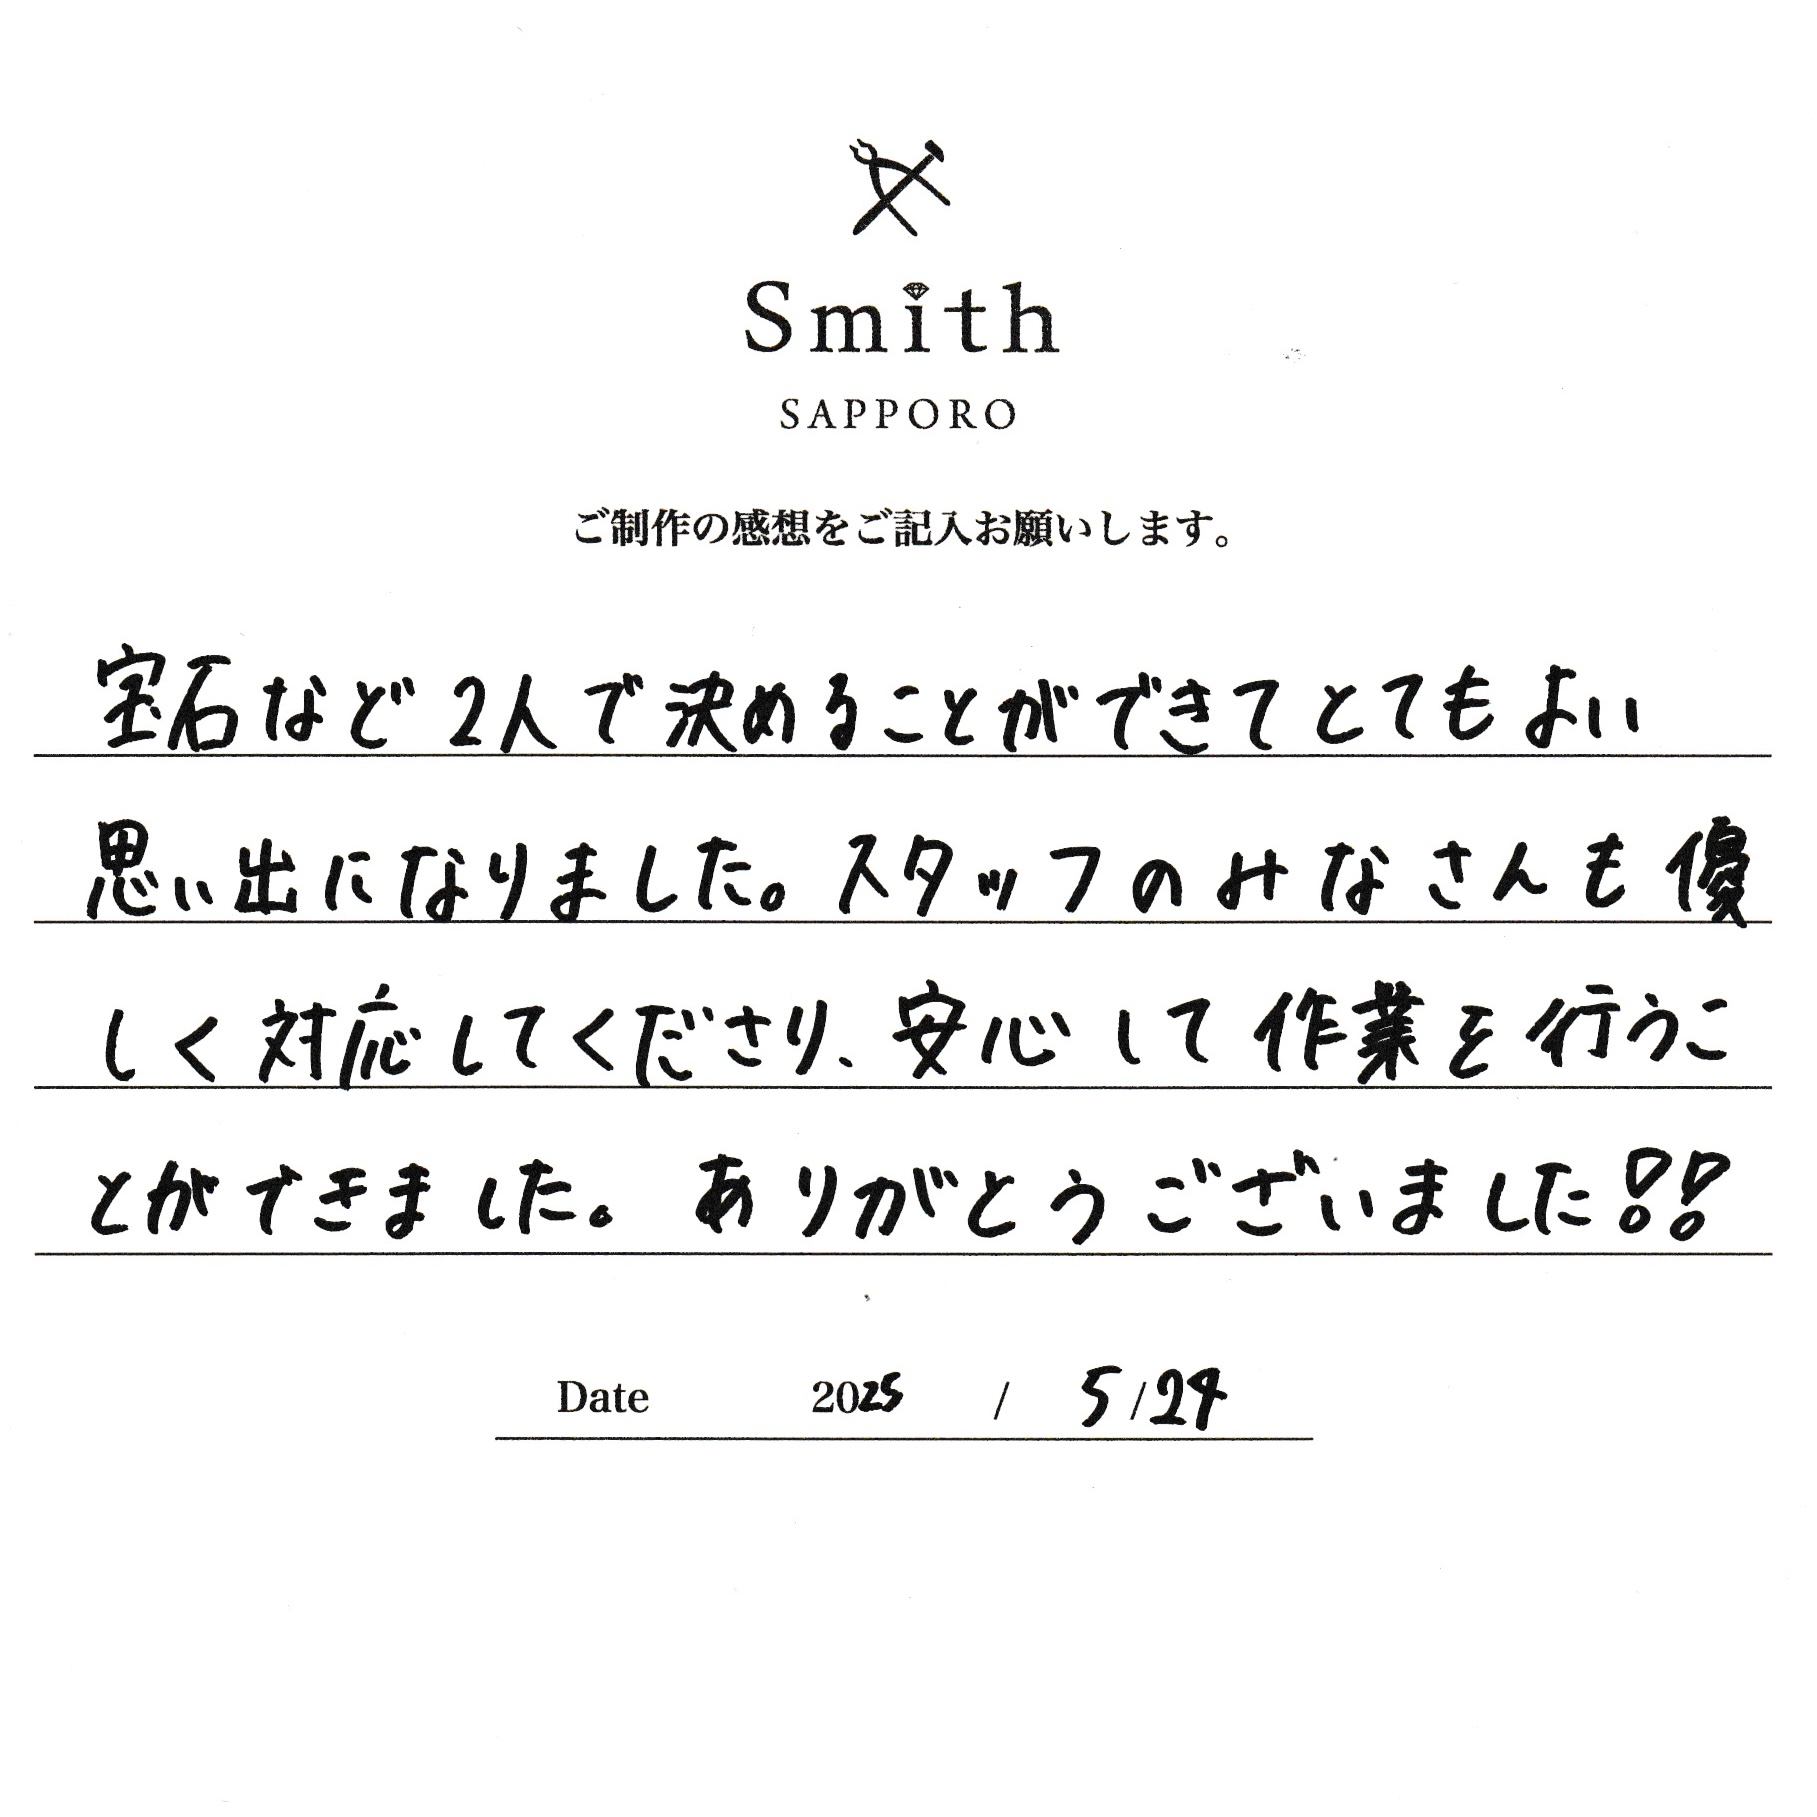 Smith
SAPPORO
ご制作の感想をご記入お願いします。
宝石など2人で決めることができてとてもよい
思い出になりました。スタッフのみなさんも優
しく対応してくださり、安心して作業を行うこ
とができました。ありがとうございました!!
Date 2025 / 5/24